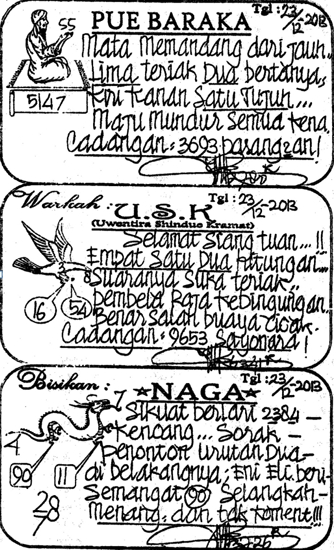 PUE BARAKA
Tgl : 23/12-2013
55
5147
Mata Memandang dari jauh..
Lima teriak Dua bertanya,
Kiri Kanan Satu Tujuh...
Maju Mundur Semua Kena
Cadangan = 3693 pasangan!
Warkah :
U.S.K
Tgl : 23/12-2013
(Uwentira Shindue Kramat)
Selamat siang tuan...!!
Empat Satu Dua hitungan...
Suaranya Suka teriak..
Pembela Raja Kebingungan..
Benar Salah buaya cicak.
Cadangan = 9653 Sayonara!
16
54
Bisikan :
NAGA
Tgl : 23/12-2013
Sikuat berlari 2384 -
Kencang... Sorak -
Penonton Urutan Dua-
di belakangnya; Eni Eli. beri-
Semangat 90 Selangkah-
Menang. dan tak Koment!!!
7
4
90
11
28
7